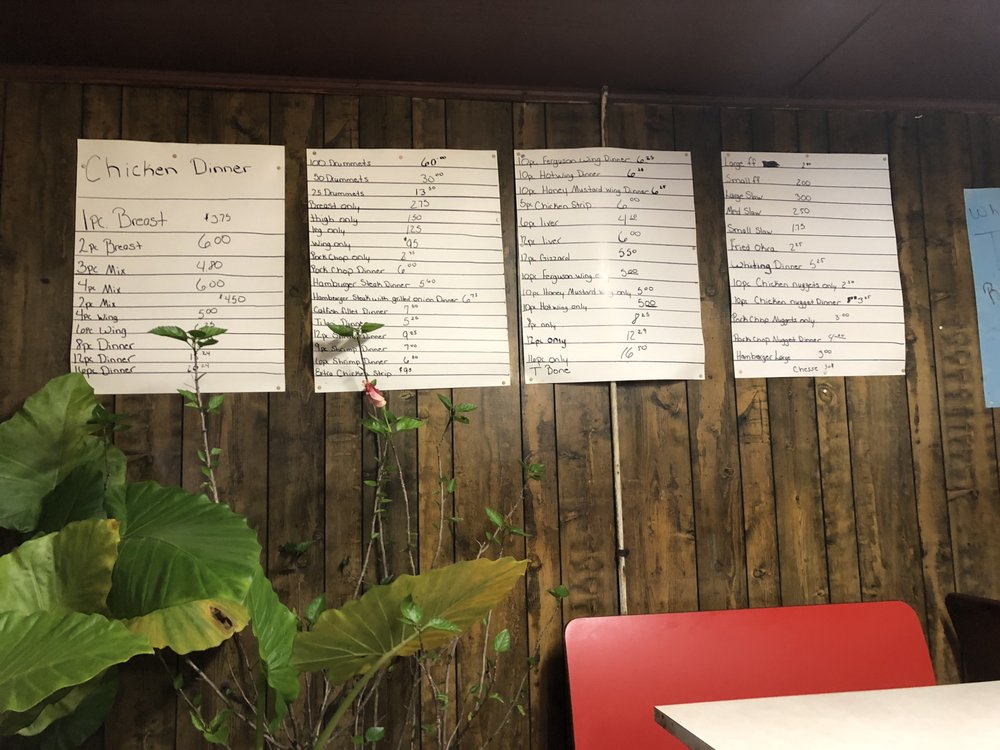 Chicken Dinner
1pc. Breast $3.75
2pc Breast 6.00
3pc Mix 4.80
4pc Mix 6.00
2pc Mix $4.50
4pc Wing 5.00
6pc Wing
8pc Dinner
12pc Dinner 24
16pc Dinner 24
100 Drummets 60.00
50 Drummets 30.00
25 Drummets 13.50
Breast only 2.75
thigh only 1.50
leg only 1.25
wing only
Pork Chop only
Pork Chop Dinner 6.00
Hamburger Steak Dinner 5.60
Hamburger Steak with grilled onion Dinner 6.75
Catfish fillet Dinner
Dinner 5.25
12pc Dinner
9pc Shrimp Dinner
16pc Shrimp Dinner
Extra Chicken Strip
10pc. Ferguson Wing Dinner 6.25
10pc Hotwing Dinner
10pc Honey Mustard Wing Dinner 6.25
5pc Chicken Strip 6.00
6pc liver
12pc liver 6.00
12pc Gizzard 5.50
10pc Ferguson wing 5.00
10pc Honey Mustard Wing only 5.00
10pc Hotwing only 5.00
8pc only 8.25
12pc only 12.29
16pc only 16.50
T Bone
Large ff
Small ff 200
Large Slaw 300
Med Slaw 250
Small Slaw 175
Fried Okra 2.25
Whiting Dinner 5.25
10pc Chicken nuggets only 2.50
10pc Chicken nugget Dinner
Pork Chop Nuggets only 3.00
Pork Chop Nugget Dinner
Hamburger Large 3.00
Chesse